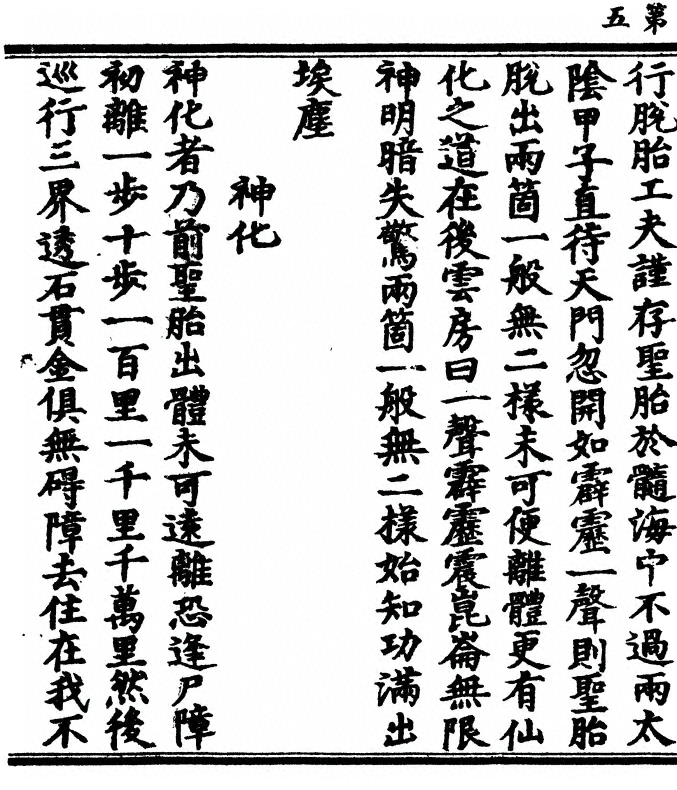 第五
行脫胎工夫謹存聖胎於髓海中不過兩太
陰甲子直待天門忽開如霹靂一聲則聖胎
脫出兩箇一般無二樣未可便離體更有仙
化之道在後雲房曰一聲霹靂震崑崙無限
神明暗失驚兩箇一般無二樣始知功滿出
埃塵
神化
神化者乃前聖胎出體未可遠離恐逢尸障
初離一步十步一百里一千里千萬里然後
巡行三界透石貫金俱無碍障去住在我不